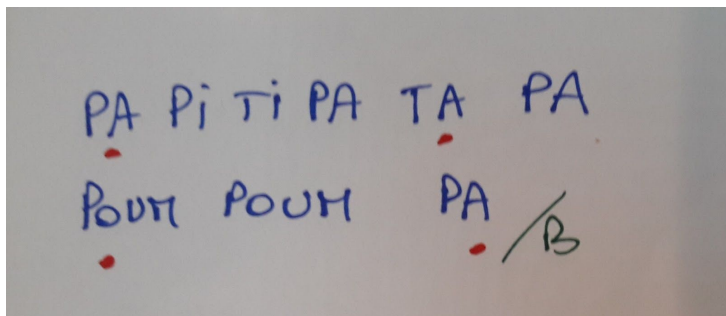 PA Pi Ti PA TA PA
POUM POUM PA /B